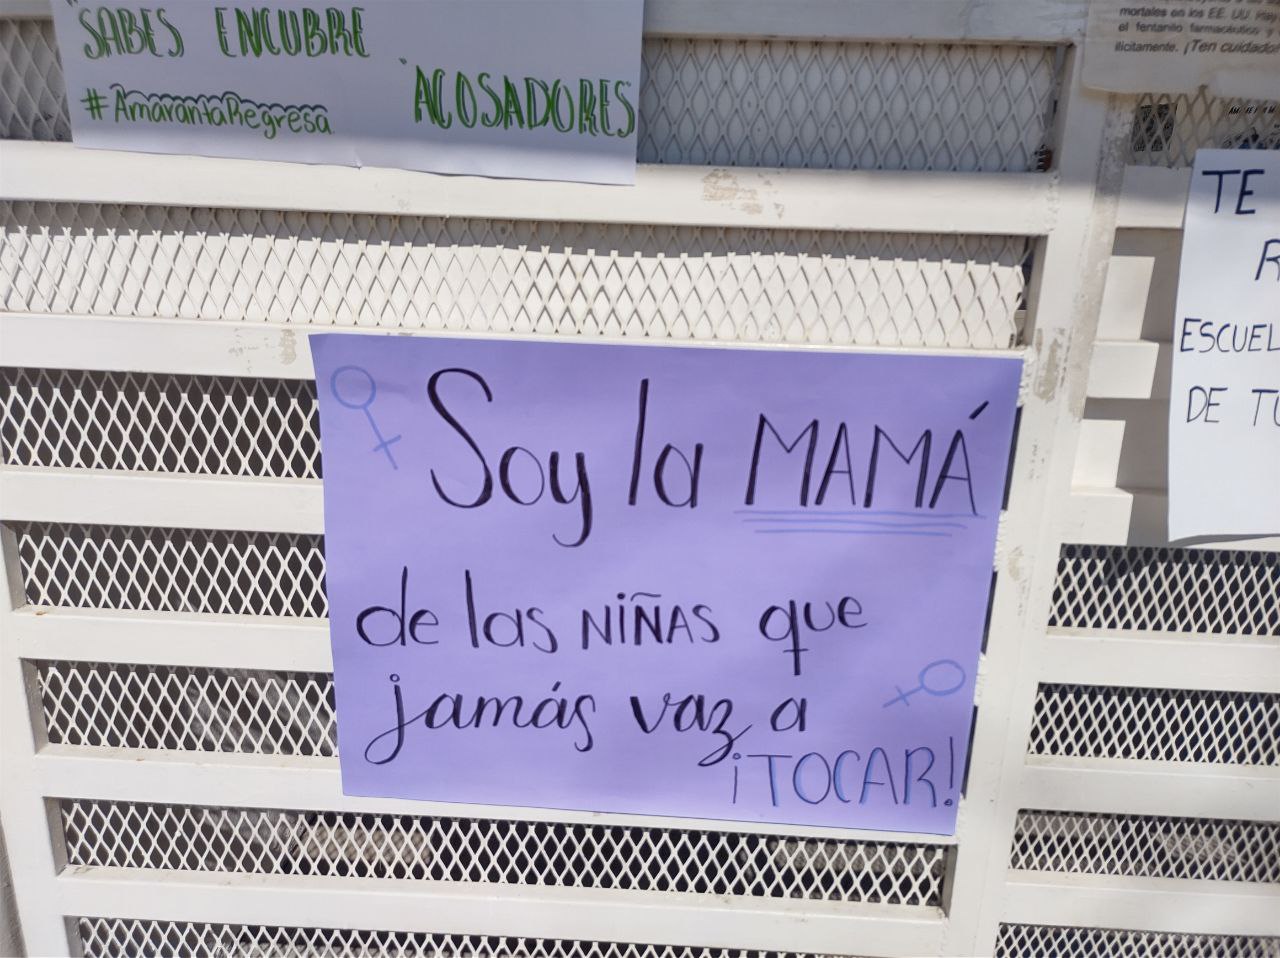 "SABES ENCUBRE
"ACOSADORES
#AmarantaRegresa
mortales en los EE. UU.
el fentanilo farmacéutico y
ilícitamente. ¡Ten cuidado
TE
R
ESCUEL
DE TU
Soy la MAMÁ
de las NIÑAS que
jamás vaz a
¡TOCAR!